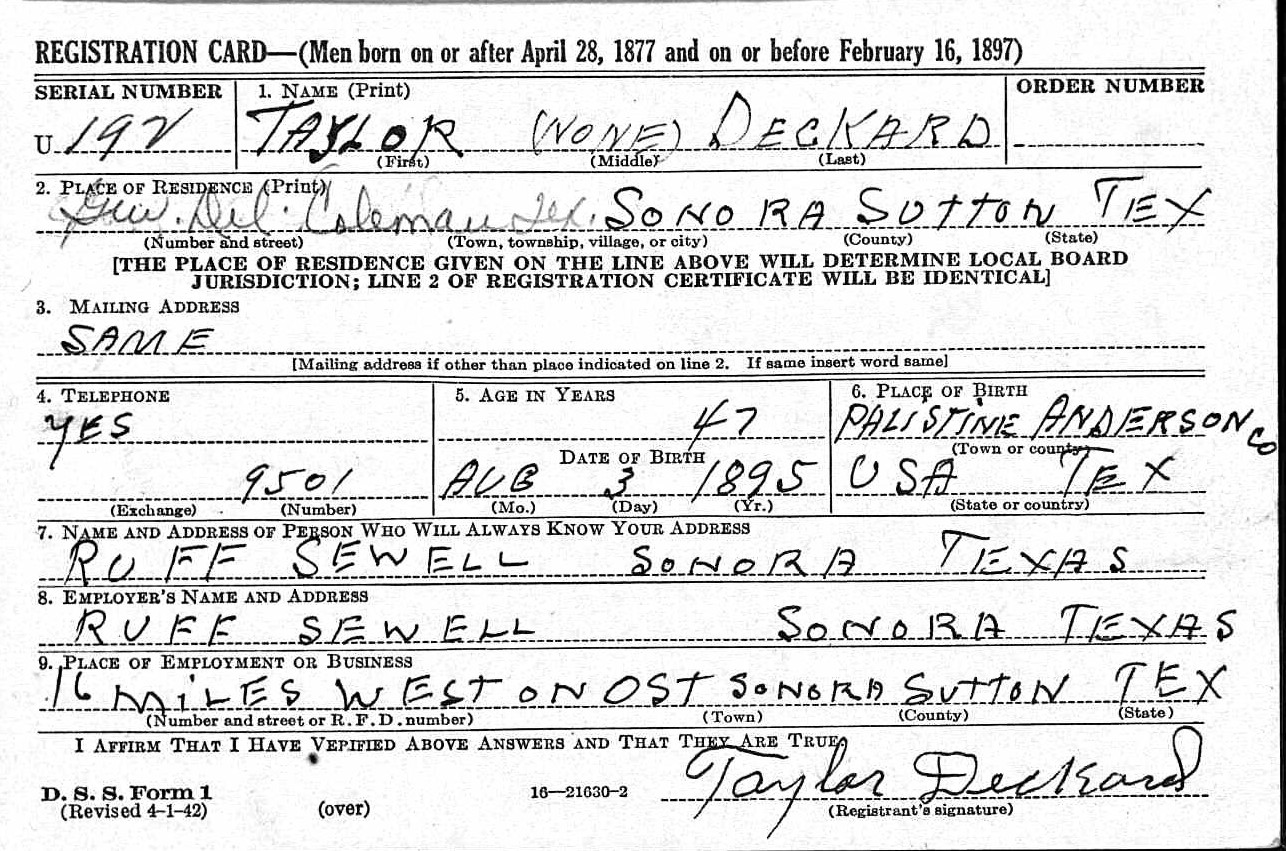 REGISTRATION CARD—(Men born on or after April 28, 1877 and on or before February 16, 1897)
SERIAL NUMBER 1. NAME (Print) ORDER NUMBER
U 192 TAYLOR (NONE) DECKARD
(First) (Middle) (Last)
2. PLACE OF RESIDENCE (Print)
Gen. Del. Coleman Tex. SONORA SUTTON TEX
(Number and street) (Town, township, village, or city) (County) (State)
[THE PLACE OF RESIDENCE GIVEN ON THE LINE ABOVE WILL DETERMINE LOCAL BOARD
JURISDICTION; LINE 2 OF REGISTRATION CERTIFICATE WILL BE IDENTICAL]
3. MAILING ADDRESS
SAME
[Mailing address if other than place indicated on line 2. If same insert word same]
4. TELEPHONE 5. AGE IN YEARS 6. PLACE OF BIRTH
YES 47 PALISTINE ANDERSON CO
DATE OF BIRTH (Town or county)
9501 AUG 3 1895 USA TEX
(Exchange) (Number) (Mo.) (Day) (Yr.) (State or country)
7. NAME AND ADDRESS OF PERSON WHO WILL ALWAYS KNOW YOUR ADDRESS
RUFF SEWELL SONORA TEXAS
8. EMPLOYER'S NAME AND ADDRESS
RUFF SEWELL SONORA TEXAS
9. PLACE OF EMPLOYMENT OR BUSINESS
16 MILES WEST ON OST SONORA SUTTON TEX
(Number and street or R.F.D. number) (Town) (County) (State)
I AFFIRM THAT I HAVE VERIFIED ABOVE ANSWERS AND THAT THEY ARE TRUE.
Taylor Deckard
D. S. S. Form 1 16—21630-2
(Revised 4-1-42) (over) (Registrant's signature)